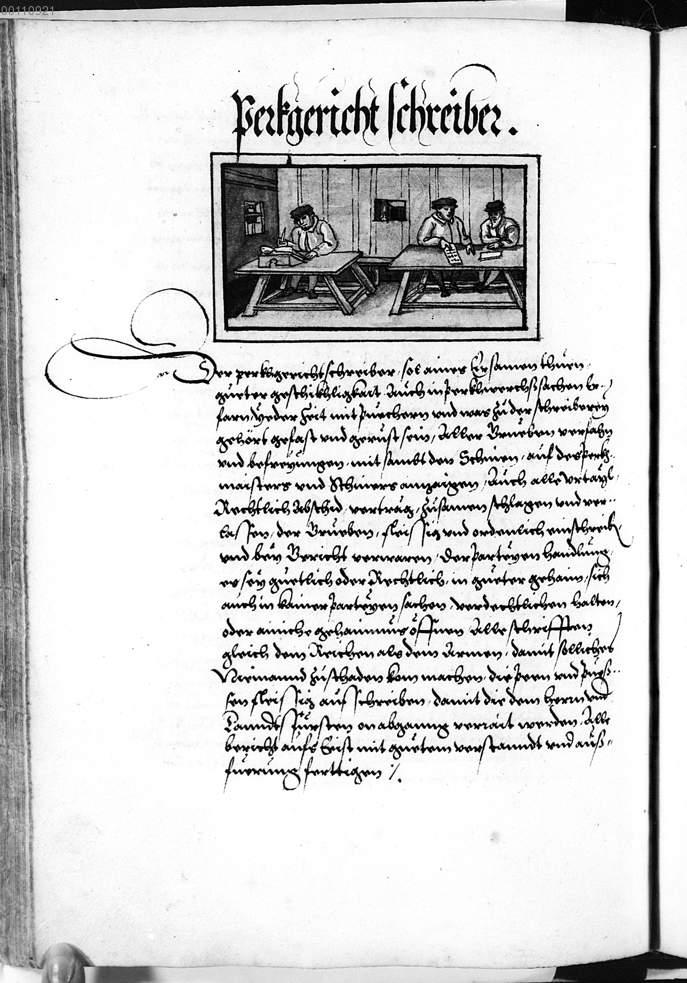 00110921
Perkgericht schreiber.
Der perkhgerichtschreiber, sol aines Ersamen thuen,
gueter geschikhligkait, Auch in perkhwerchssachen er-
farn, yeder Zeit mit puechern vnd was Zu der schreiberey
gehört gefast vnd gerust sein, Aller Grueben verfahn
vnd befreyungen, mit sambt den Schinen, auf des perkh-
maisters vnd Schiners anzaigen, Auch alle Vrtayl,
Rechtlich Abschid, vertrag, Zusamen schlagen vnd ver-
lassen, der Grueben, fleissig vnd ordenlich einschreib
vnd bey Gericht verwaren, Der partheyen handlung,
es sey guetlich oder Rechtlich, in gueter gehaim, sich
auch in kainer partheyen sachen, verdechtlichen halten,
oder ainiche gehaimnus öffnen, Alle schrifften
gleich dem Reichen als dem Armen, damit solliches
Niemannd Zuschaden kom machen, die peen vnd pueß-
sen fleissig aufschreiben, damit die dem herrn vnd
Lanndsfürsten on abganng verrait werden, Alle
bericht aufs kürzist mit guetem verstanndt vnd auß-
fuerung ferttigen /.